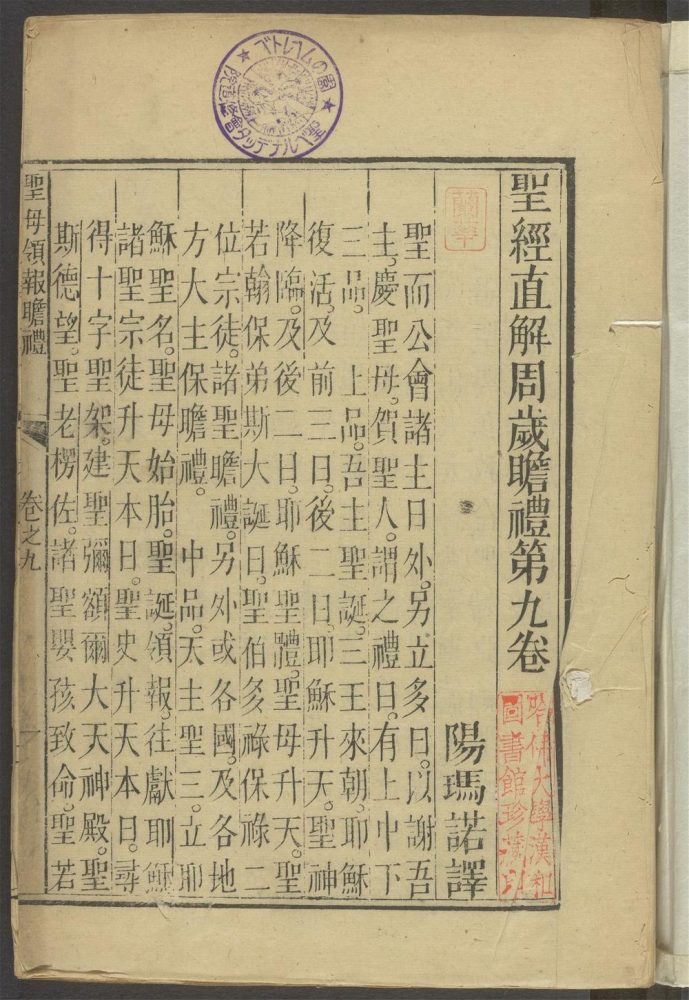 聖經直解周歲瞻禮第九卷
陽瑪諾譯
聖而公會諸主日外。另立多日。以謝吾
主。慶聖母。賀聖人。謂之禮日。有上中下
三品。上品。吾主聖誕。三王來朝。耶穌
復活。及前三日。後二日。耶穌升天。聖神
降臨。及後二日。耶穌聖體。聖母升天。聖
若翰保弟斯大誕日。聖伯多祿保祿二
位宗徒。諸聖瞻禮。另外或各國。及各地
方大主保瞻禮。中品。天主聖三。立耶
穌聖名。聖母始胎。聖誕。領報。往獻耶穌
諸聖宗徒升天本日。聖史升天本日。尋
得十字聖架。建聖彌額爾大天神殿。聖
斯德望。聖老楞佐。諸聖嬰孩致命。聖若
聖母領報瞻禮
卷之九
一
哈佛大學漢和
圖書館珍藏印